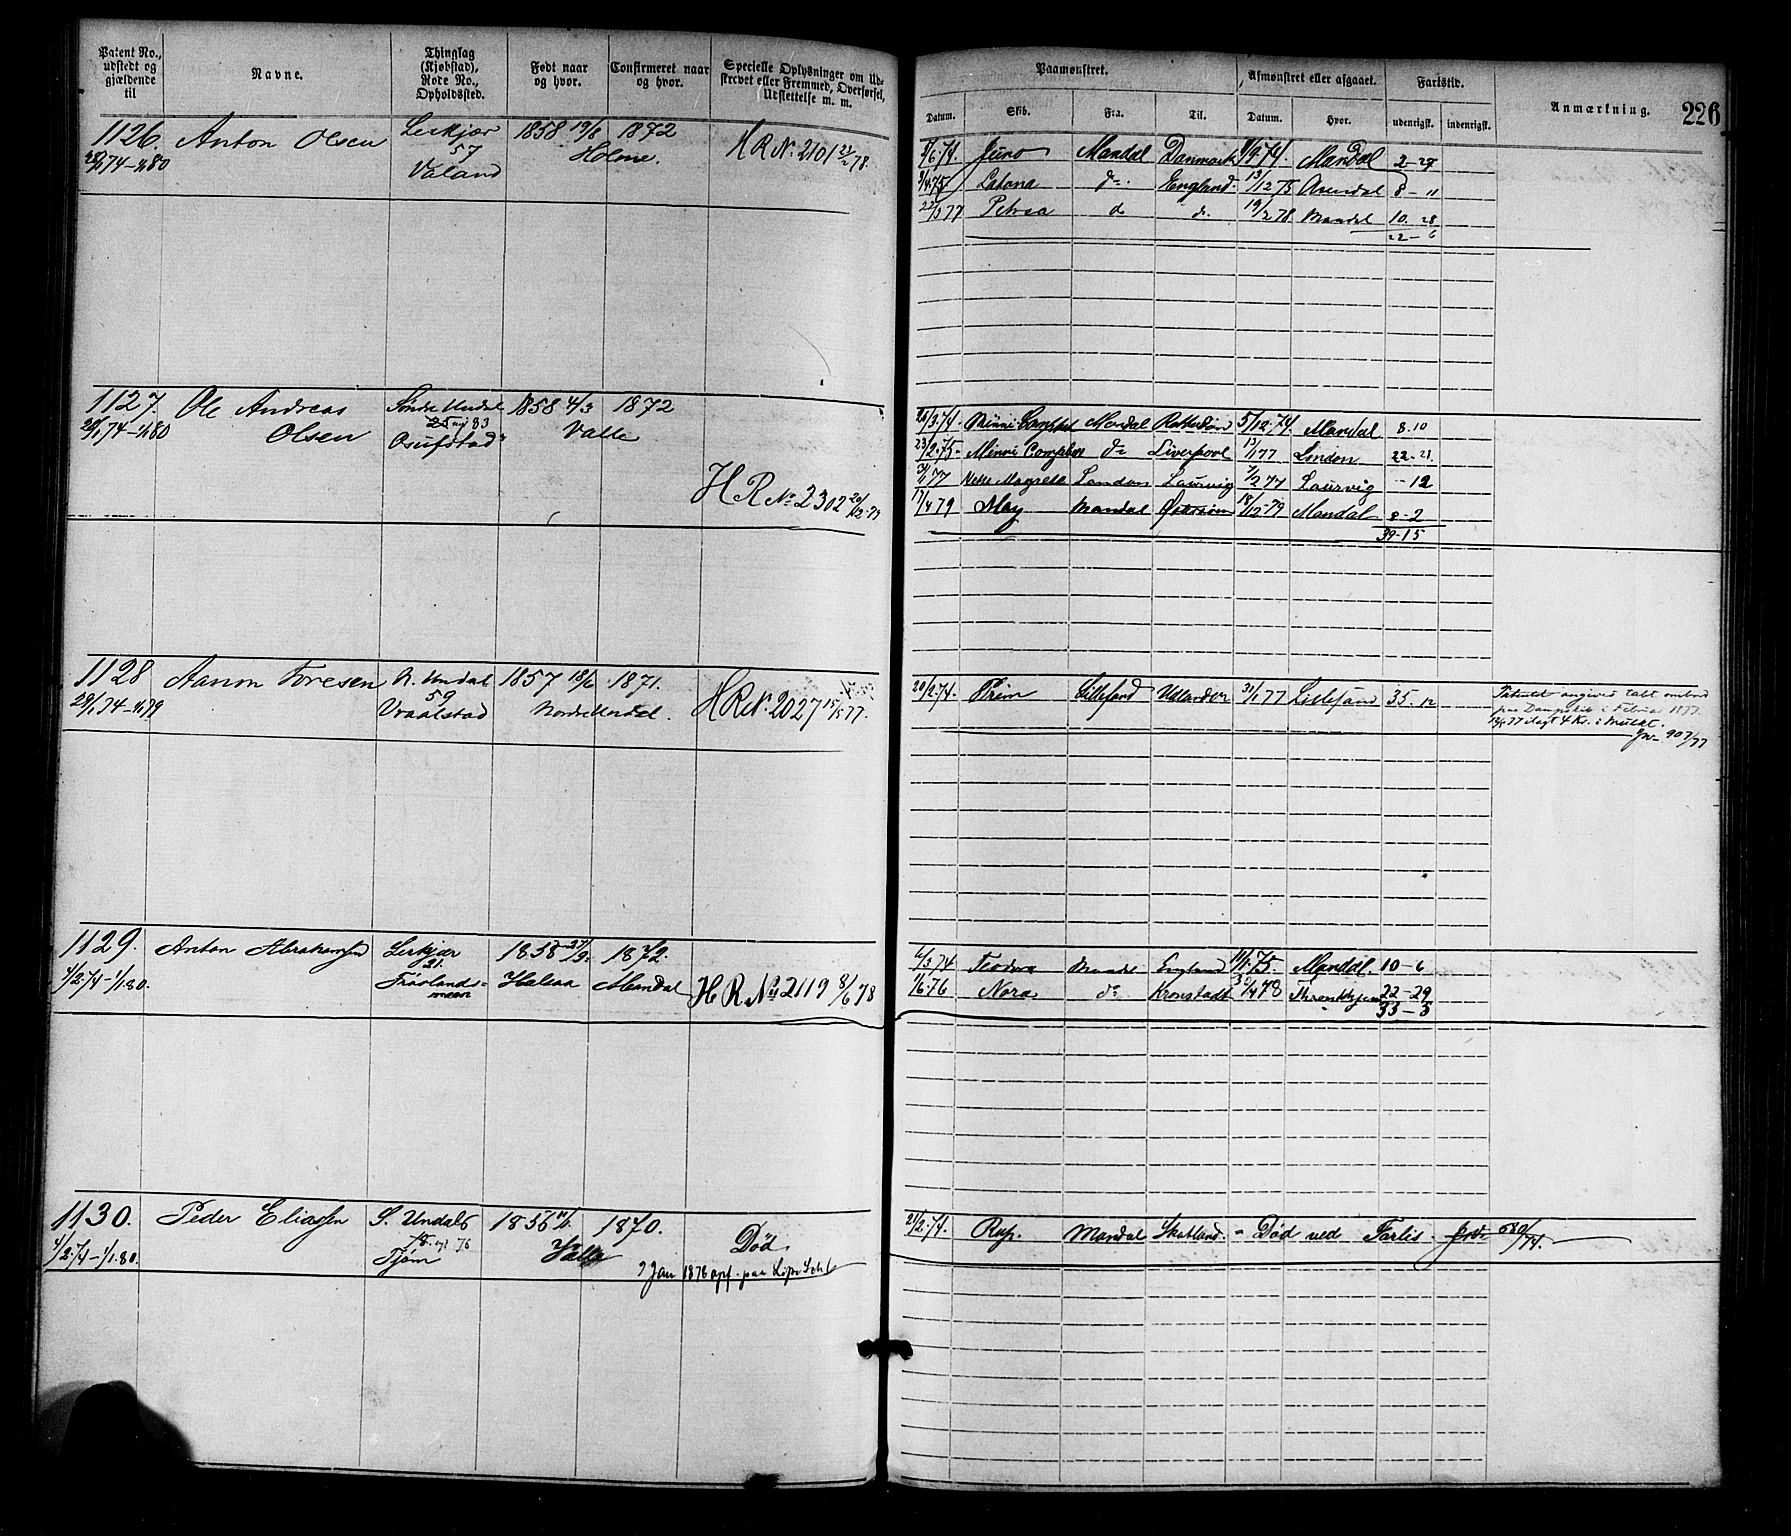 Patent No., udstedt og gjældende til
Navne.
Thinglag (Kjøbstad), Rode No., Opholdssted.
Født naar og hvor.
Confirmeret naar og hvor.
Specielle Oplysninger om Udskrevet eller Fremmed, Overførsel, Udslettelse m. m.
Paamønstret.
Afmønstret eller afgaaet.
Fartstid.
Anmærkning.
226
Datum.
Skib.
Fra.
Til.
Datum.
Hvor.
udenrigsk.
indenrigsk.
1126. Anton Olsen Lerkjær 1858 19/8 1872 HR No. 2101 21/2 78.
57 Holme.
74 - 1/1 80 Valand
2/6 74. Juno Mandal Danmark 1/9 74. Mandal 2-27
9/4 75 Latona do. England. 13/12 75 Arendal 8 - "
77 Petrea do do. 19/2 78. Mandal 10. 28
22-6
1127. Ole Andreas Søndre Undal 1858 4/3 1872
25 83
74 - 1/1 80 Olsen Osufstad Valle
HR No 2302 20/12 79
3. 74. Mandal Rotterdam 5/12. 74. Mandal 8.10
23/2. 75 - Minni do Liverpool 13/1 77 London 22-21
77 London Laurvig 2/2 77 Laurvig - 12
17/4 79 May Mandal 18/12 79 Mandal 8-2
39-15
1128 Aanon Toresen N. Undal 1857 18/6 1871. HR No. 2027 15/5 77.
59
29/1 74 - 1/1 79 Vraalstad Nordre Undal.
20/2. 74. Prim Lillesand Udlandet 31/1 77 Lillesand 35. 12
angives tabt ombord
paa Dampskib i Februar 1877.
77 ilagt 4 Kr. i Mulkt.
Jn. 907/77
1129. Anton Abrahamsen Lerkjær 1858 27/9. 1872.
21.
4/2. 74 - 1/1. 80. Frøslandsmoen Halsaa Mandal HR No 2119 8/6 78
6/3 74 Teodora Mandal England 11/1. 75. Mandal. 10-6
1/6. 76 Nora do Kronstadt 78 Throndhjem 22-29
33-5
1130. Peder Eliassen S. Undals 1856 1870. Død.
18. 76
4/2. 74 - 1/1. 80. Tjøm Valle
9 Jan 1876 opf. paa
21/2. 74. Rap. Mandal Skotland. - Død ved Farlis. Jn. 680/74.